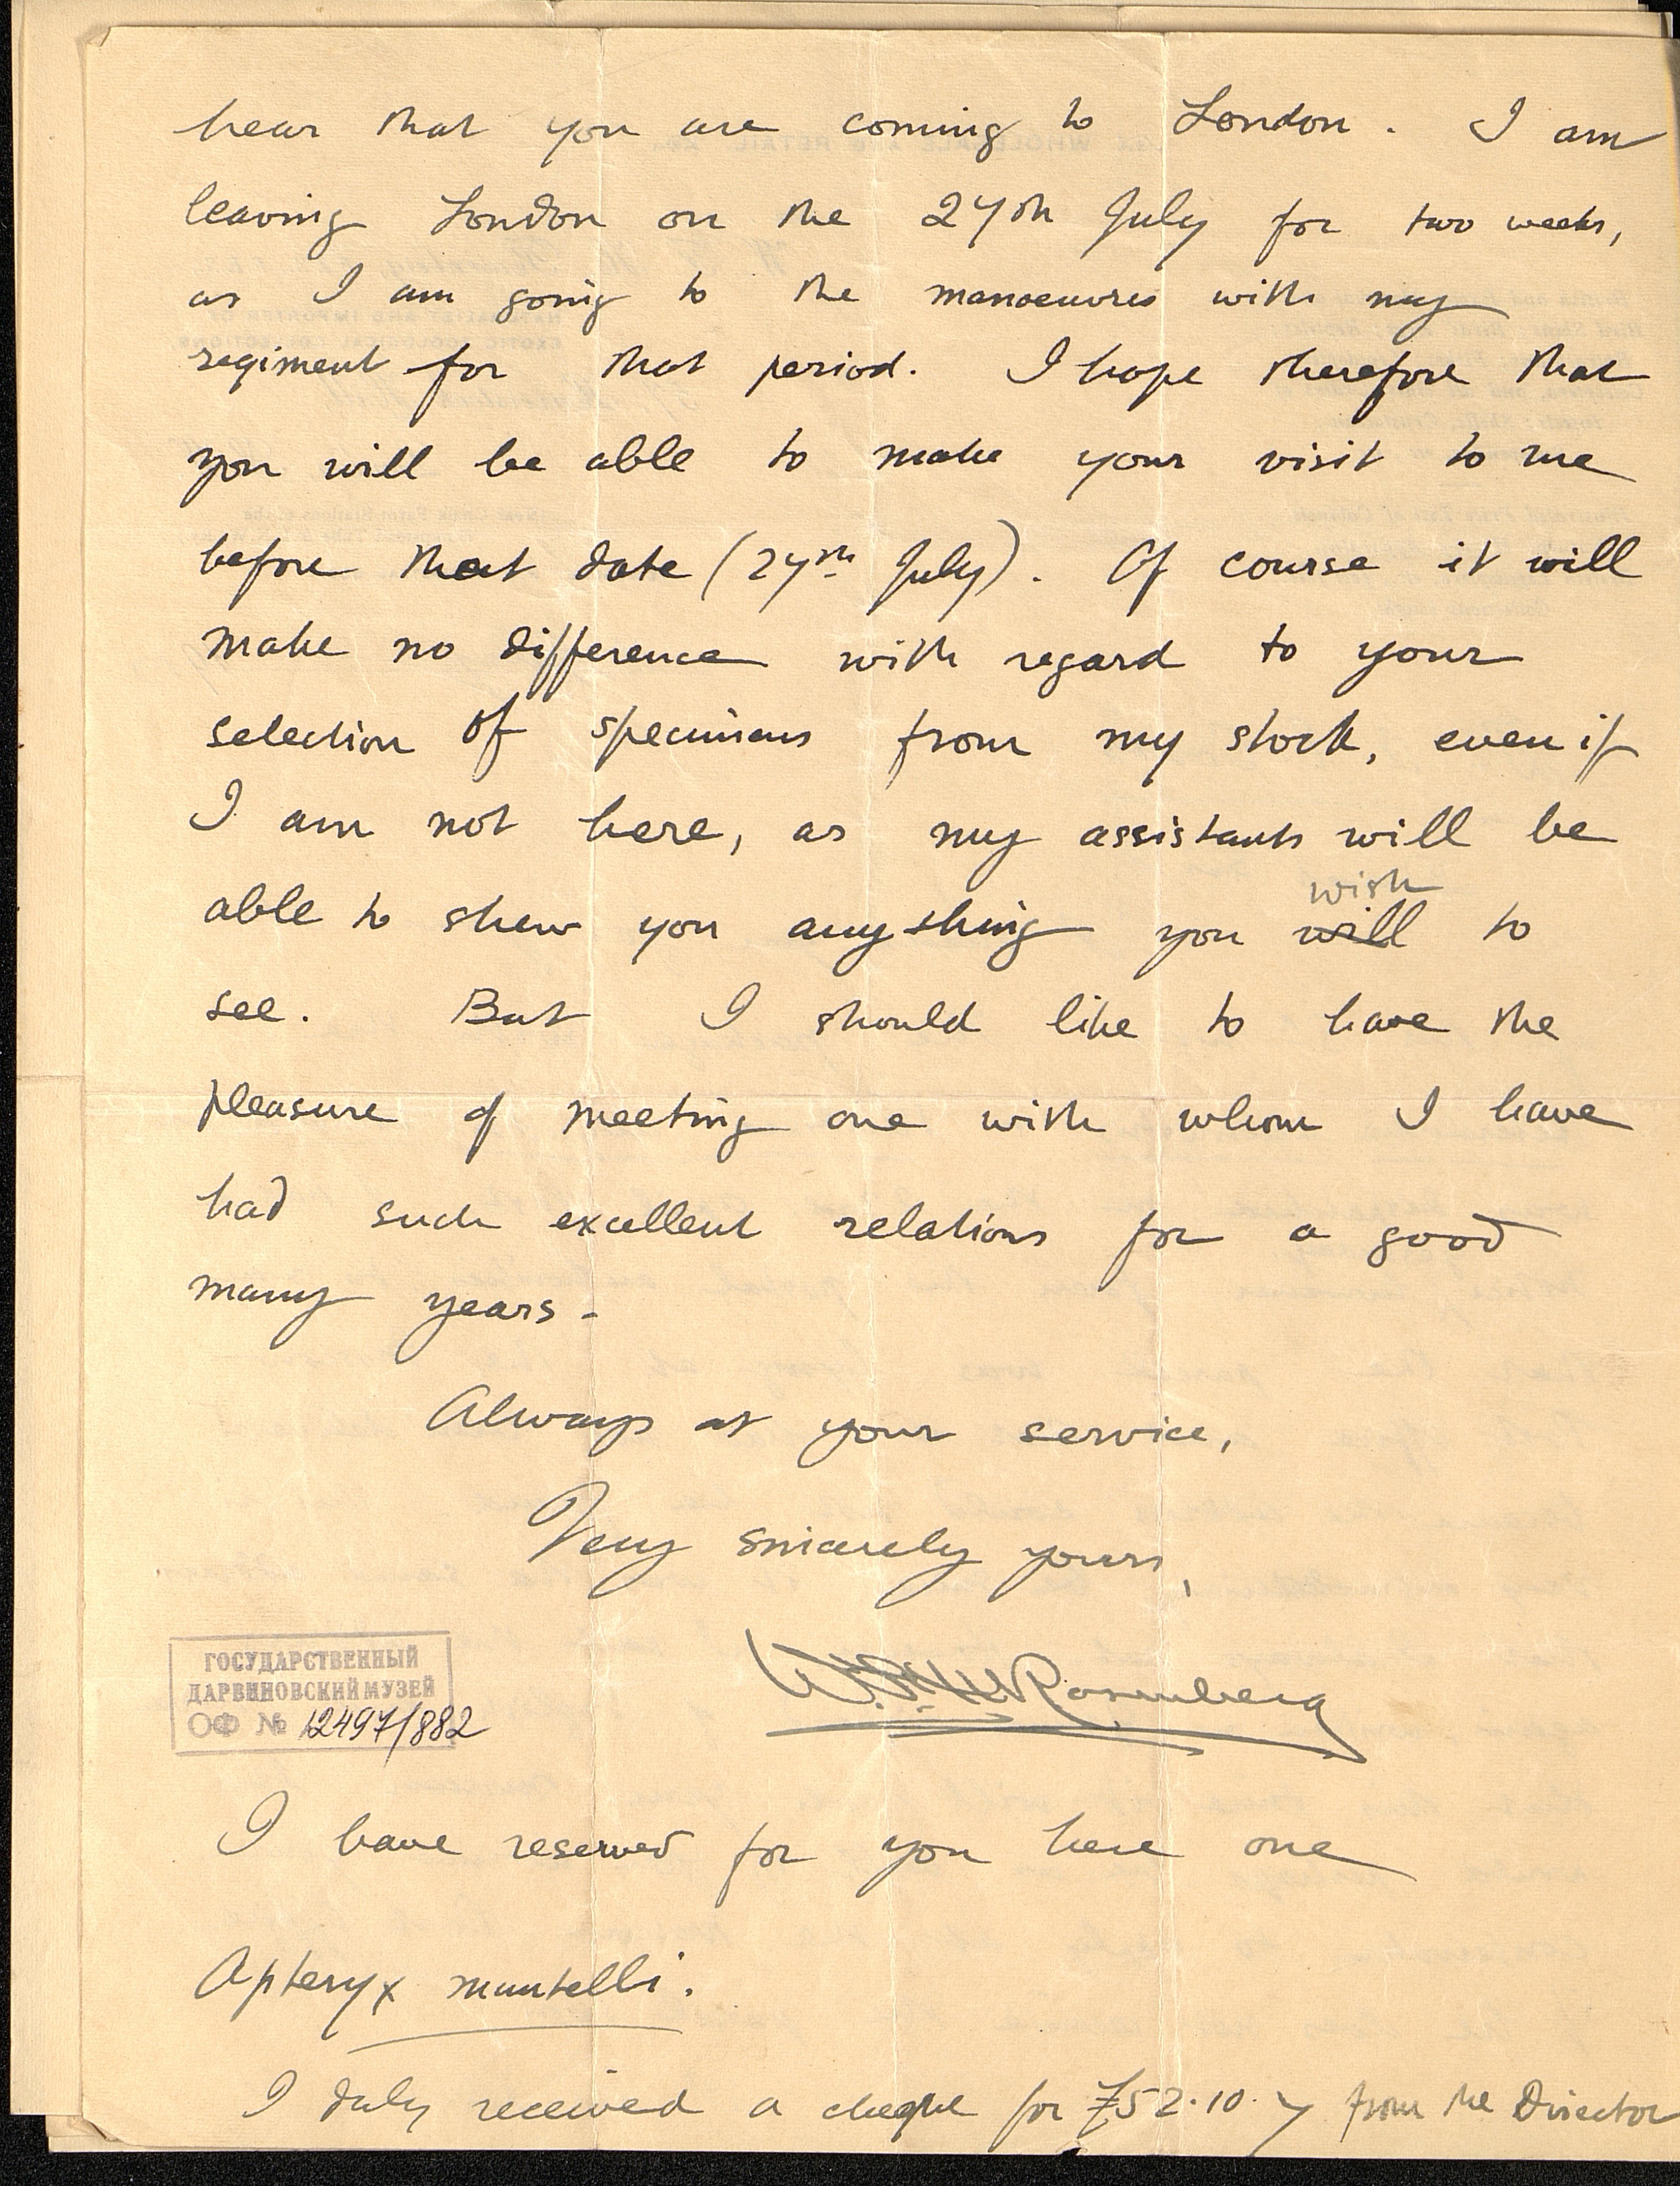 hear that you are coming to London. I am
leaving London on the 27th July for two weeks,
as I am going to the manoeuvres with my
regiment for that period. I hope therefore that
you will be able to make your visit to me
before that date (27th July). Of course it will
make no difference with regard to your
selection of specimens from my stock, even if
I am not here, as my assistants will be
wish
able to shew you anything you will to
see. But I should like to have the
pleasure of meeting one with whom I have
had such excellent relations for a good
many years.
Always at your service,
Very sincerely yours,
W.F.H. Rosenberg
ГОСУДАРСТВЕННЫЙ
ДАРВИНОВСКИЙ МУЗЕЙ
ОФ № 12497/882
I have reserved for you here one
Apteryx mantelli.
I duly received a cheque for £52.10.7 from the Director